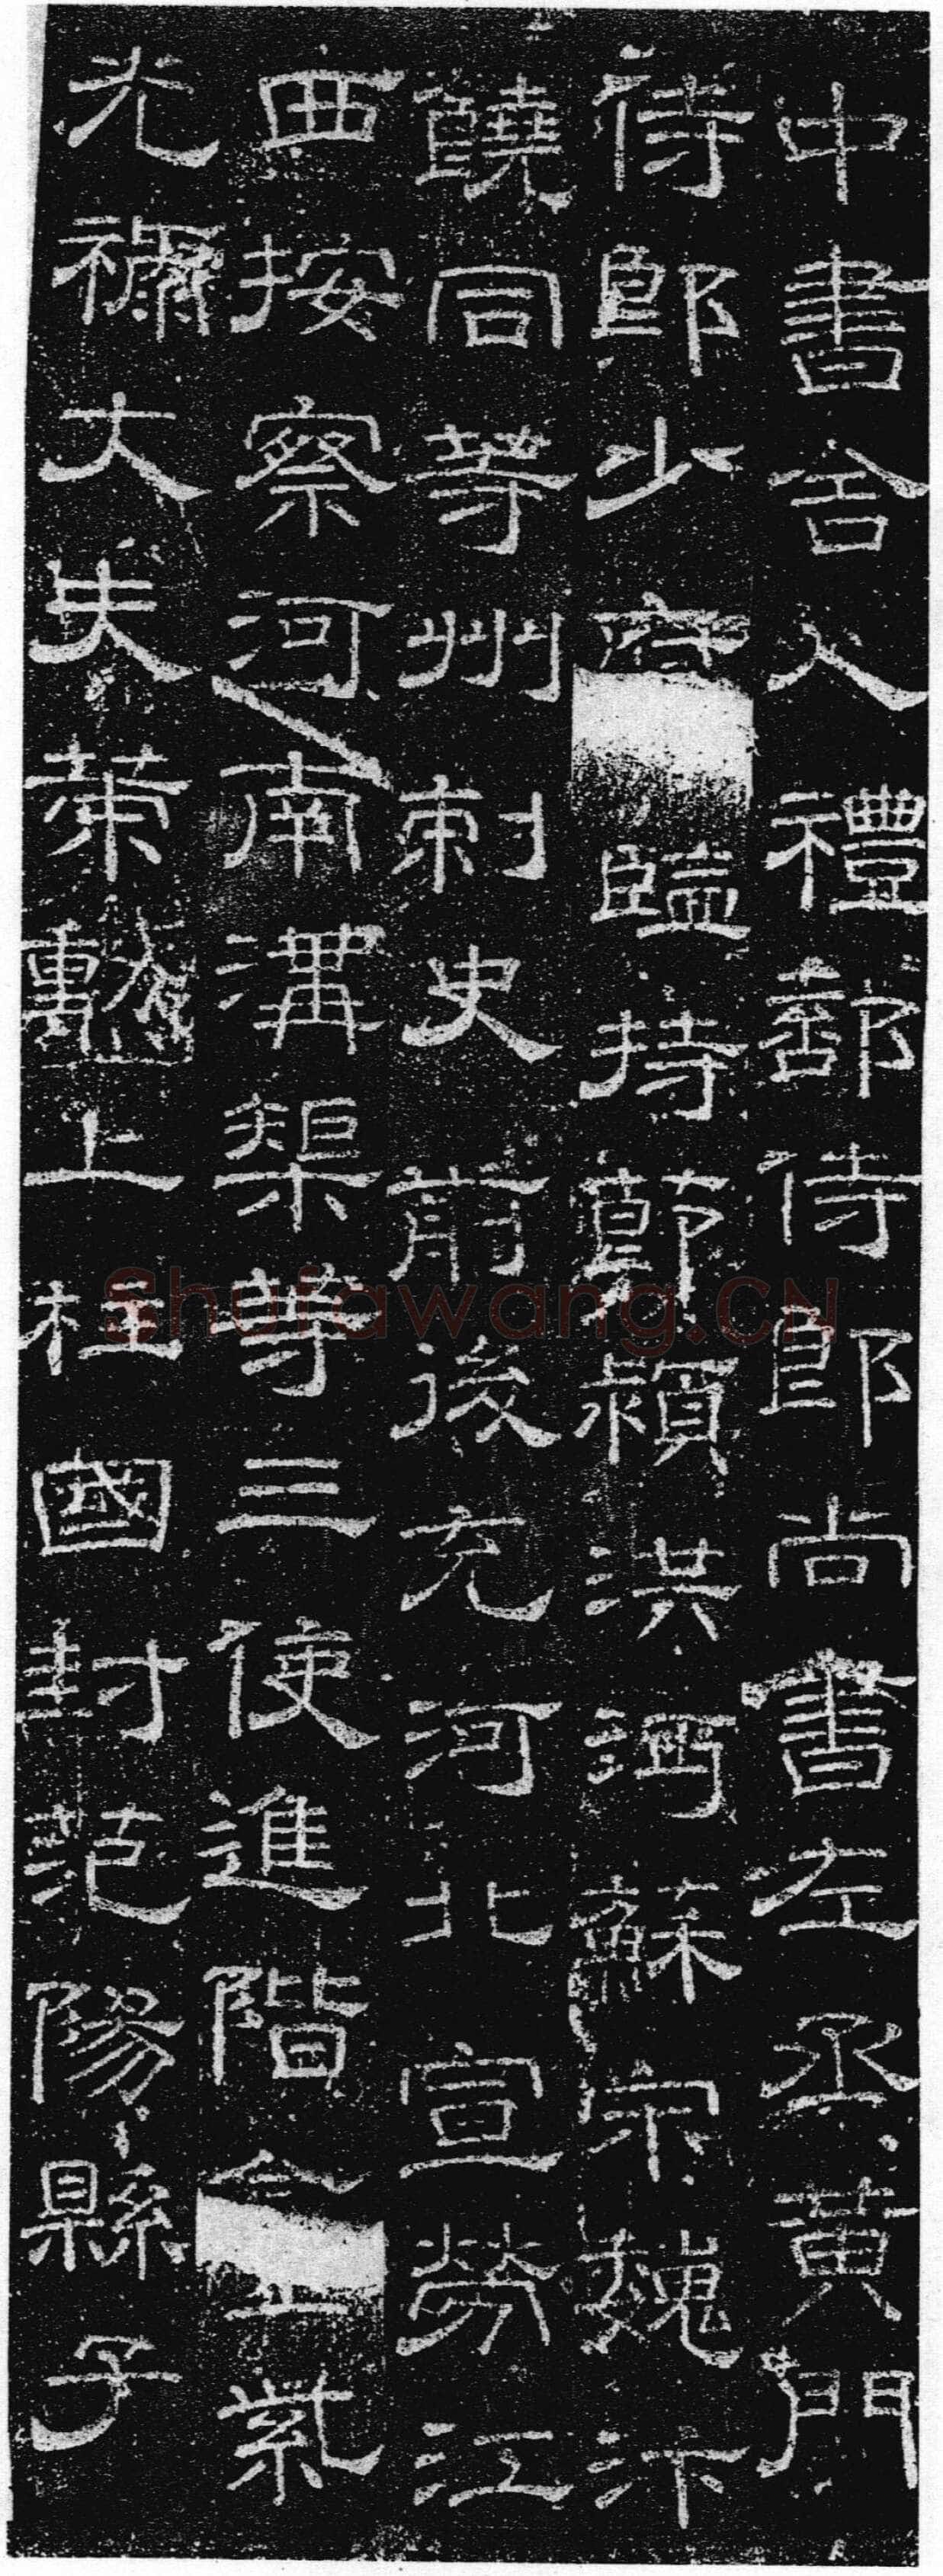 中書舍人禮部侍郎尚書左丞黃門
侍郎少府監持節潁洪沔蘇宋魏汴
饒同等州刺史前後充河北宣勞江
西按察河南溝渠等三使進階金紫
光祿大夫策勳上柱國封范陽縣子
Shufawang.CN